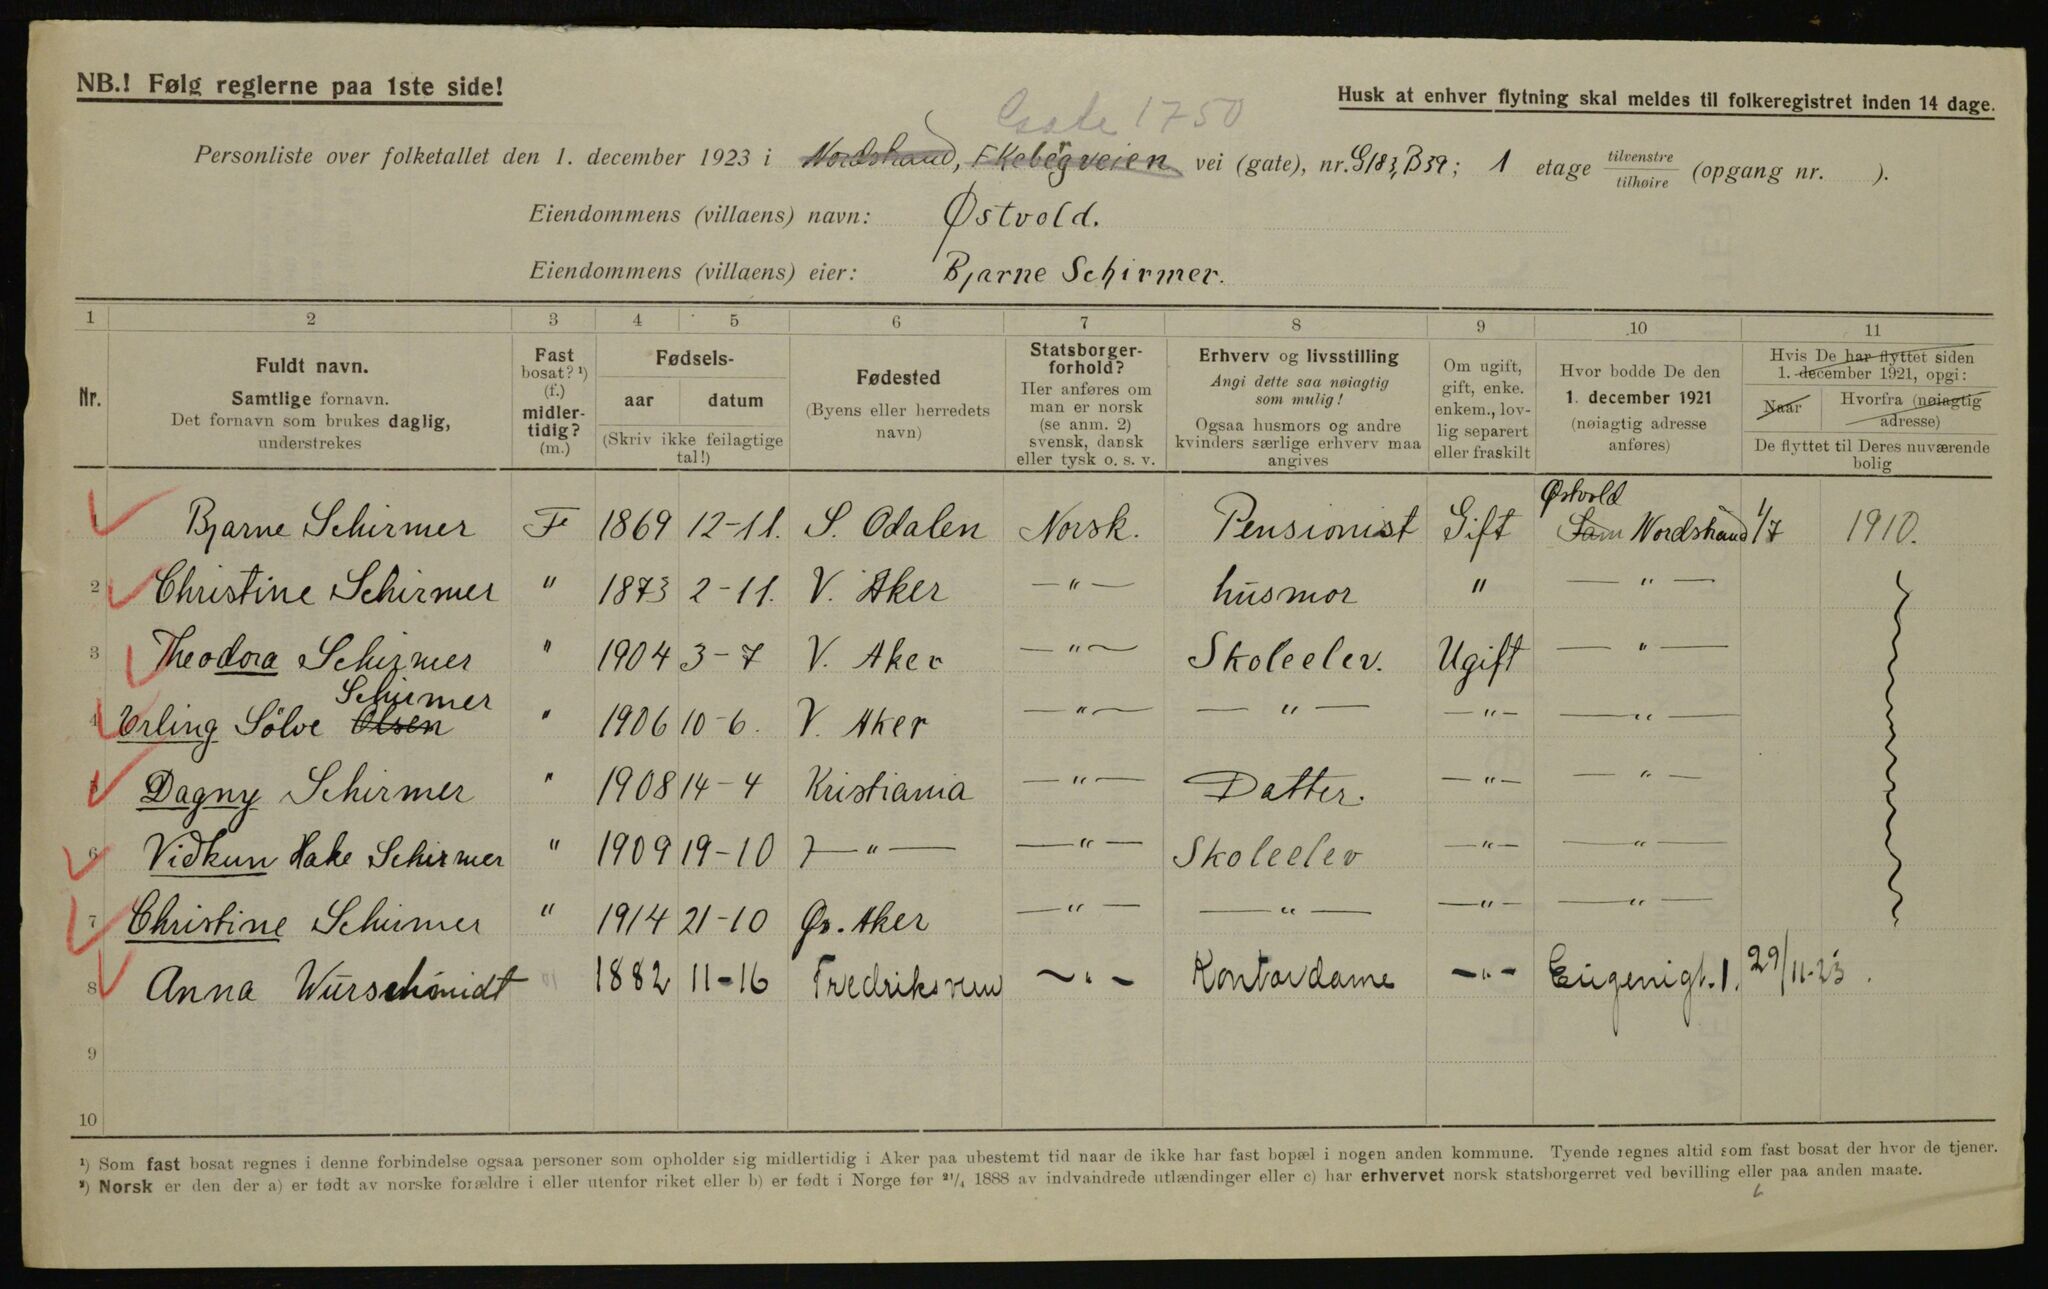 NB.! Følg reglerne paa 1ste side!
Husk at enhver flytning skal meldes til folkeregistret inden 14 dage.
1750
Personliste over folketallet den 1. december 1923 i Nordstrand, Ekebergveien vei (gate), nr. G183, B39; 1 etage tilvenstre/tilhøire (opgang nr. ).
Eiendommens (villaens) navn: Østvold.
Eiendommens (villaens) eier: Bjarne Schirmer.
1 2 3 4 5 6 7 8 9 10 11
Nr.
Fuldt navn.
Samtlige fornavn.
Det fornavn som brukes daglig,
understrekes
Fast
bosat? ¹)
(f.)
midler-
tidig?
(m.)
Fødsels-
aar datum
(Skriv ikke feilagtige
tal!)
Fødested
(Byens eller herredets
navn)
Statsborger-
forhold?
Her anføres om
man er norsk
(se anm. 2)
svensk, dansk
eller tysk o. s. v.
Erhverv og livsstilling
Angi dette saa nøiagtig
som mulig!
Ogsaa husmors og andre
kvinders særlige erhverv maa
angives
Om ugift,
gift, enke.
enkem., lov-
lig separert
eller fraskilt
Hvor bodde De den
1. december 1921
(nøiagtig adresse
anføres)
Hvis De har flyttet siden
1. december 1921, opgi:
Naar
Hvorfra (nøiagtig
adresse)
De flyttet til Deres nuværende
bolig
Østvold
1 Bjarne Schirmer F 1869 12-11. S. Odalen Norsk. Pensionist Gift Sam Nordstrand 1/7 1910.
2 Christine Schirmer " 1873 2-11. V. Aker —"— husmor " —"—
3 Theodora Schirmer " 1904 3-7 V. Aker —"— Skoleelev. Ugift —"—
Schirmer
4 Erling Sölve Olsen " 1906 10-6. V. Aker —"— —"— —"— —"—
5 Dagny Schirmer " 1908 14-4 Kristiania —"— Datter. —"— —"—
6 Vidkun Hake Schirmer " 1909 19-10 —"— —"— Skoleelev —"— —"—
7 Christine Schirmer " 1914 21-10 Ø. Aker —"— —"— —"— —"—
8 Anna Wūrschmidt 1882 11-16 Fredriksvern —"— Kontordame —"— Eugenigt. 1. 29/11-23.
9
10
¹) Som fast bosat regnes i denne forbindelse ogsaa personer som opholder sig midlertidig i Aker paa ubestemt tid naar de ikke har fast bopæl i nogen anden kommune. Tyende regnes altid som fast bosat der hvor de tjener.
²) Norsk er den der a) er født av norske forældre i eller utenfor riket eller b) er født i Norge før ²¹/₄ 1888 av indvandrede utlændinger eller c) har erhvervet norsk statsborgerret ved bevilling eller paa anden maate.